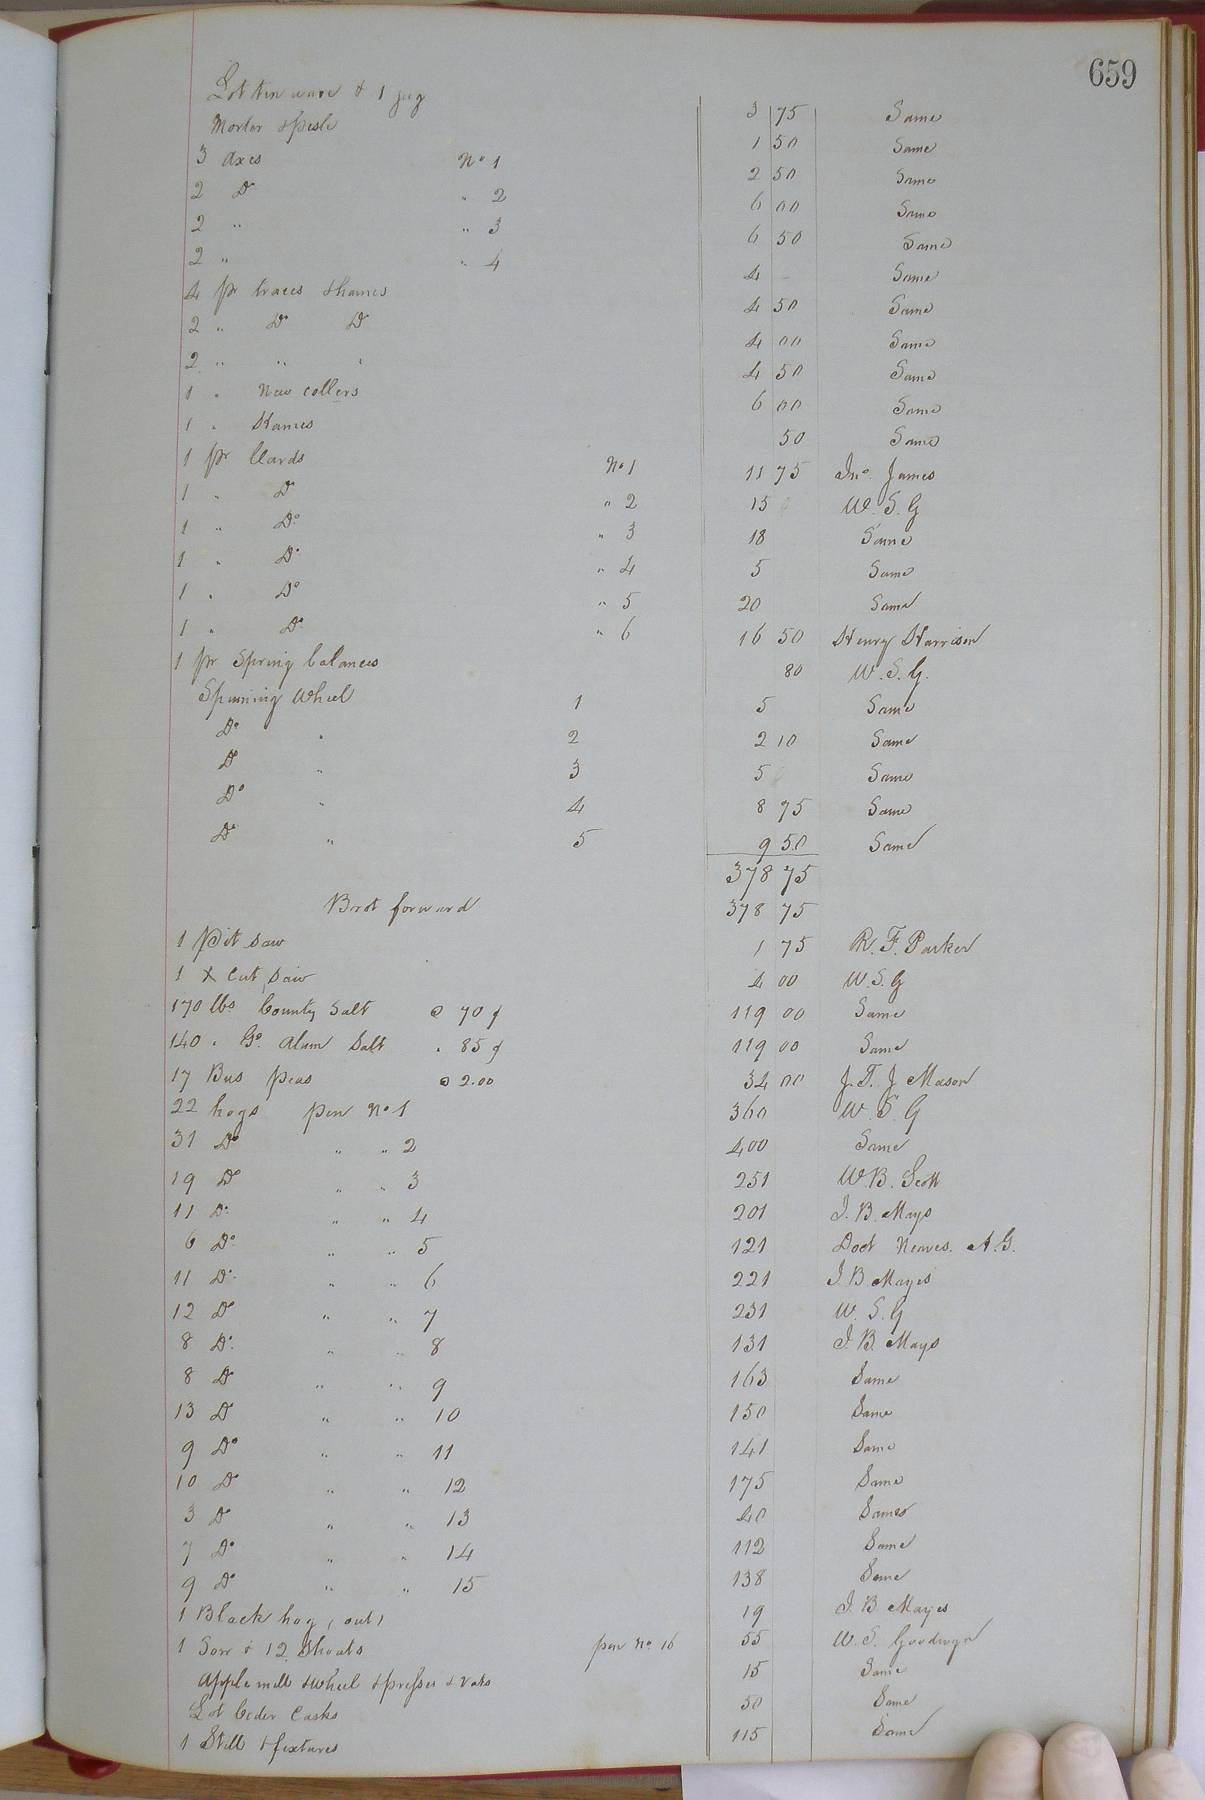 659
Lot tin ware & 1 jug 3 75 Same
Mortar & pestle 1 50 Same
3 axes No 1 2 50 Same
2 Do " 2 6 00 Same
2 " " 3 6 50 Same
2 " " 4 4 - Same
4 pr traces & hames 4 50 Same
2 " Do Do 4 00 Same
2 " " " 4 50 Same
1 " New collers 6 00 Same
1 " Hames 50 Same
1 pr Cards No 1 11 75 Jno. James
1 " Do " 2 15 W. S. G
1 " Do " 3 18 Same
1 " Do " 4 5 Same
1 " Do " 5 20 Same
1 " Do " 6 16 50 Henry Harrison
1 pr Spring balances 80 W. S. G.
Spinning Wheel 1 5 Same
Do " 2 2 10 Same
Do " 3 5 Same
Do " 4 8 75 Same
Do " 5 9 50 Same
378 75
Brot forward 378 75
1 Pit saw 1 75 R. F. Parker
1 X Cut saw 4 00 W. S. G
170 lbs County Salt @ 70 ¢ 119 00 Same
140 " Gd. Alum Salt " 85 ¢ 119 00 Same
17 Bus peas @ 2.00 34 00 J. T. J. Mason
22 hogs pen No 1 360 W. S. G
31 Do " " 2 400 Same
19 Do " " 3 251 W. B. Scott
11 Do " " 4 201 J. B. Mays
6 Do " " 5 121 Doct Neaves. A. G.
11 Do " " 6 221 J. B Mayes
12 Do " " 7 231 W. S. G
8 Do " " 8 131 J. B. Mays
8 Do " " 9 163 Same
13 Do " " 10 150 Same
9 Do " " 11 141 Same
10 Do " " 12 175 Same
3 Do " " 13 40 Same
7 Do " " 14 112 Same
9 Do " " 15 138 Same
1 Black hog (out) 19 J. B. Mayes
1 Sow & 12 Shoats pen No. 16 55 W. S. Goodwyn
Apple mill & wheel & presses & vats 15 Same
Lot Cider Casks 50 Same
1 Still & fixtures 115 Same